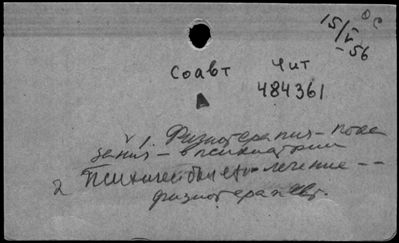 15/V-56
Соавт Чит
484361
1. Физиотерапия - пока
зания - в психиатрии
2 Психические б-ни - лечение --
физиотерап